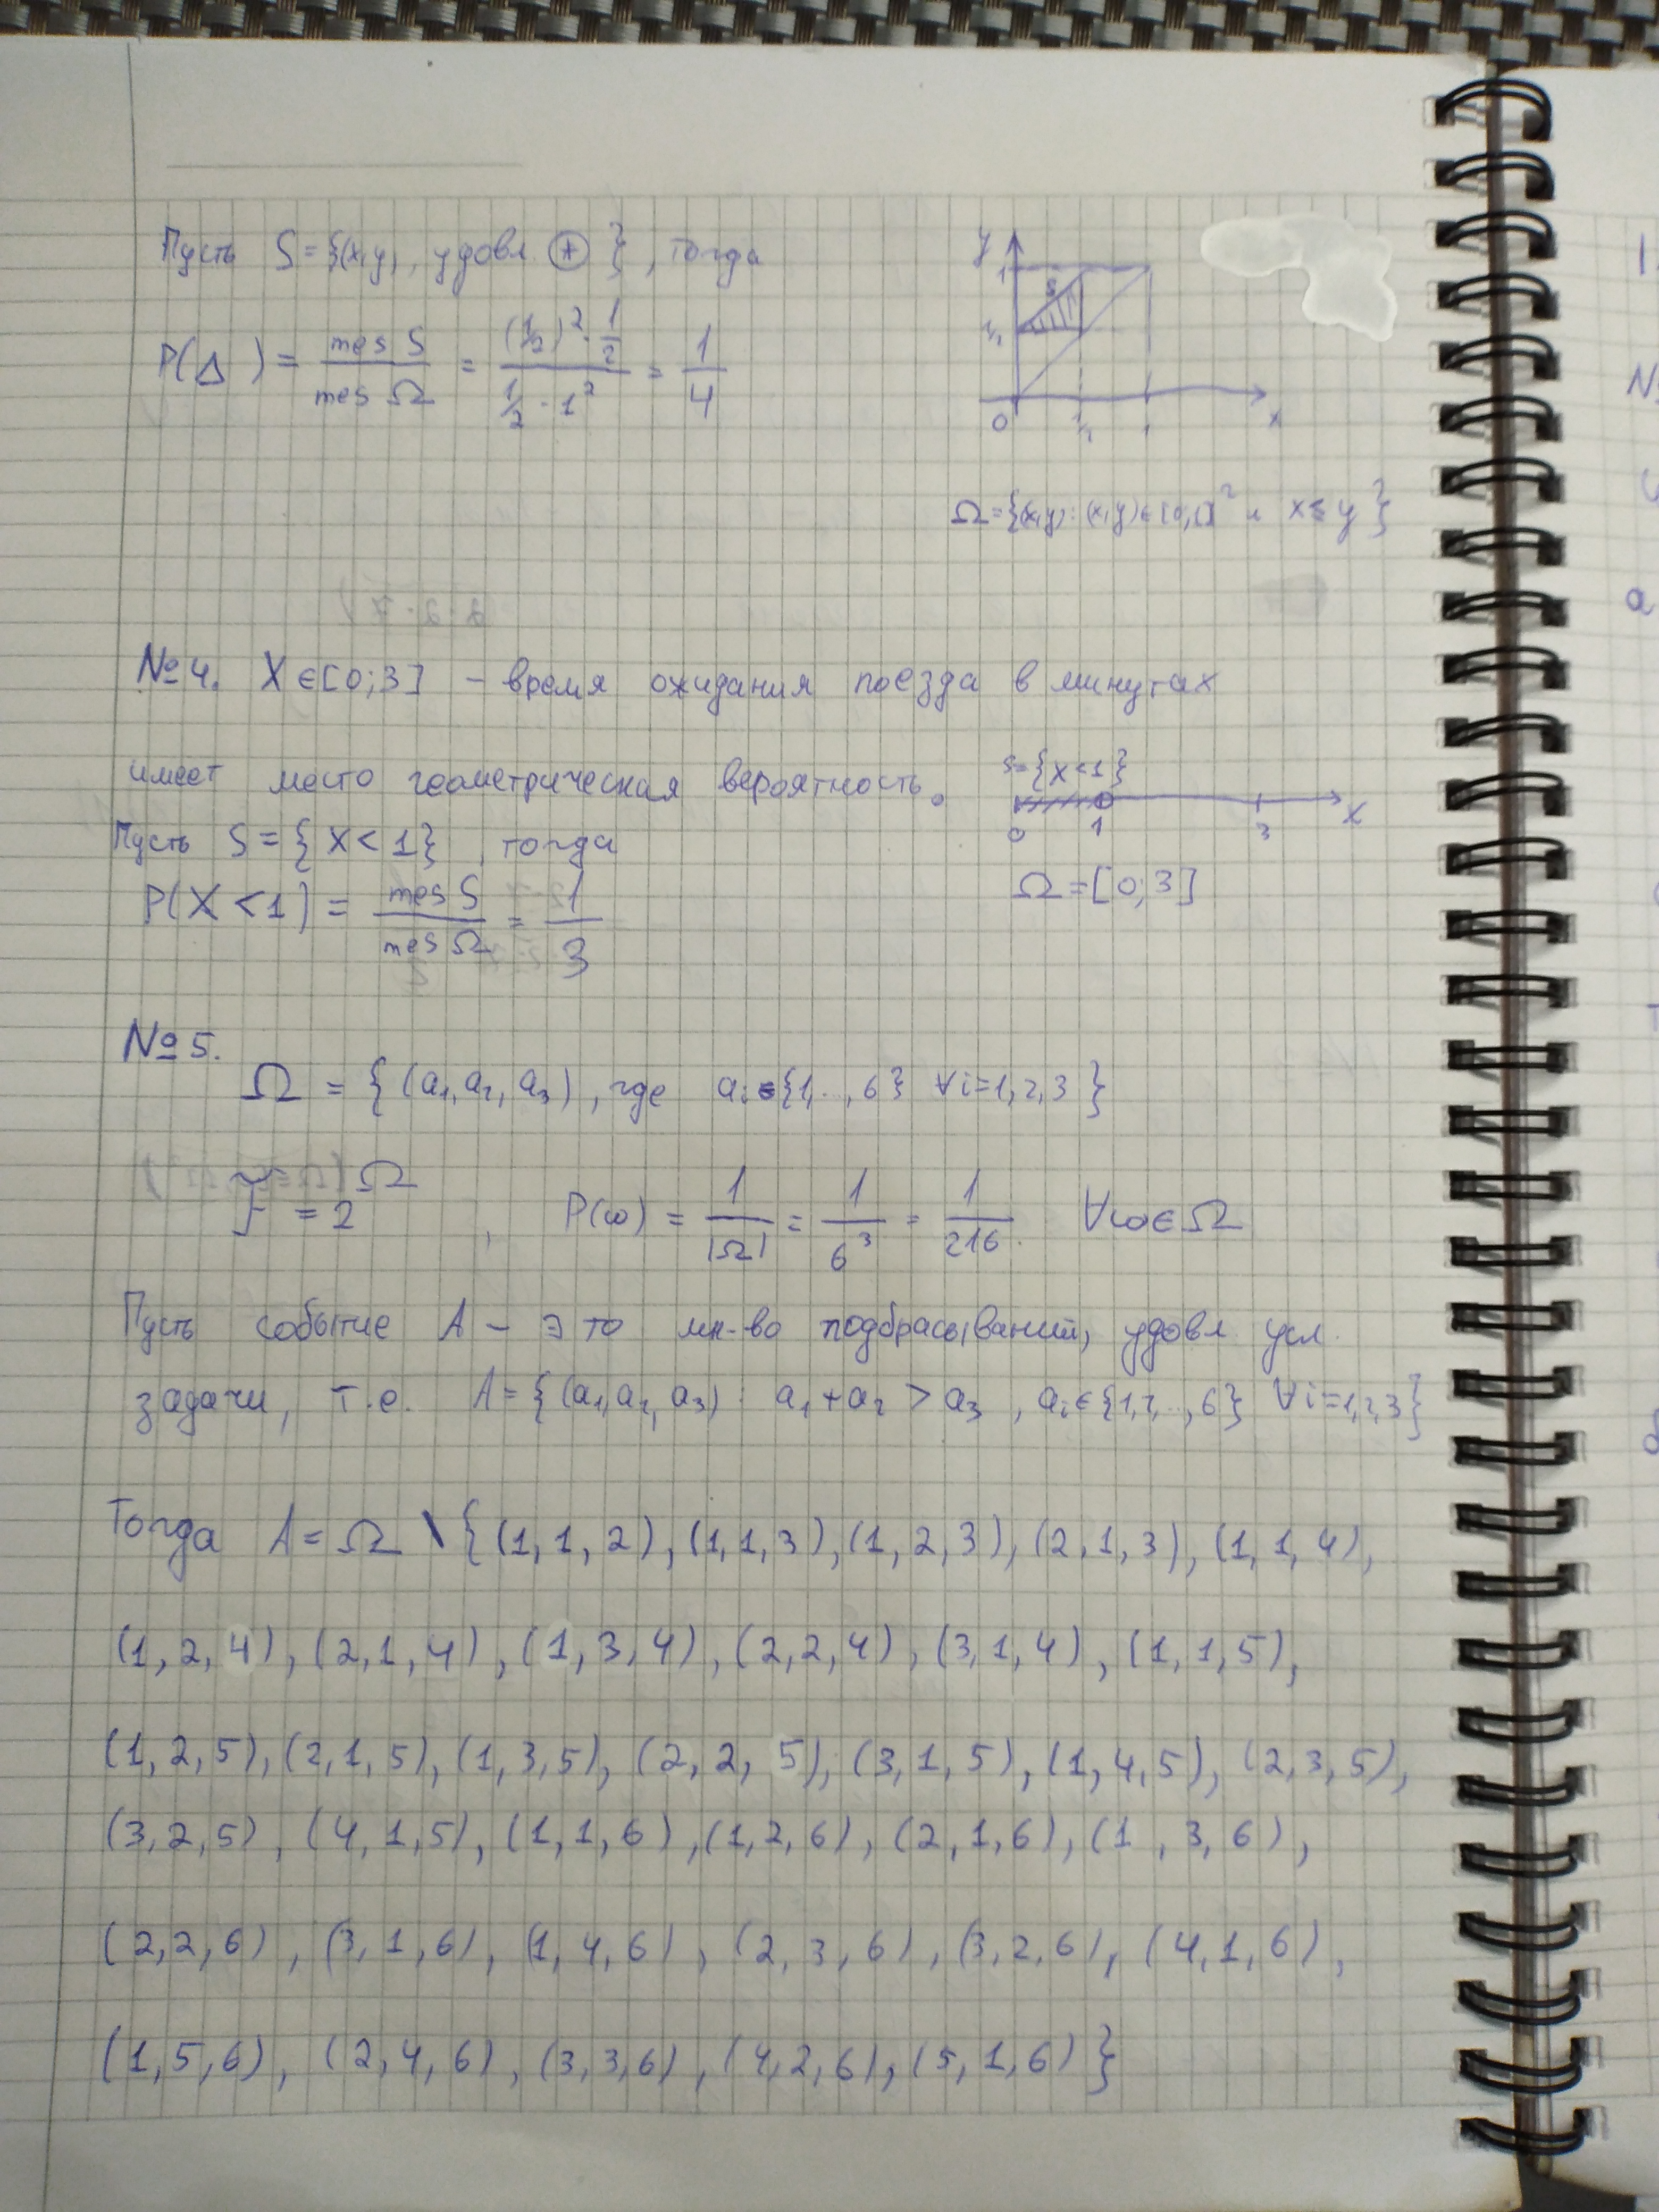 Пусть S = {(x,y), удовл. (*) }, тогда
P(Δ) = mes S / mes Ω = ((1/2)² · 1/2) / (1/2 · 1²) = 1/4
y
1
S
1/2
0
1/2
1
x
Ω = {(x,y): (x,y) ∈ [0,1]² и x ≤ y}
№ 4. X ∈ [0; 3] – время ожидания поезда в минутах
имеет место геометрическая вероятность.
S = {X < 1}
0 1 3 X
Пусть S = { X < 1}, тогда
Ω = [0; 3]
P(X < 1) = mes S / mes Ω = 1/3
№ 5.
Ω = { (a₁, a₂, a₃), где aᵢ ∈ {1, .., 6} ∀i = 1, 2, 3 }
F = 2^Ω , P(ω) = 1/|Ω| = 1/6³ = 1/216. ∀ω ∈ Ω
Пусть событие A – это мн-во подбрасываний, удовл усл.
задачи, т.е. A = {(a₁, a₂, a₃) : a₁ + a₂ > a₃, aᵢ ∈ {1, 2, .., 6} ∀i = 1, 2, 3}
Тогда A = Ω \ { (1, 1, 2), (1, 1, 3), (1, 2, 3), (2, 1, 3), (1, 1, 4),
(1, 2, 4), (2, 1, 4), (1, 3, 4), (2, 2, 4), (3, 1, 4), (1, 1, 5),
(1, 2, 5), (2, 1, 5), (1, 3, 5), (2, 2, 5), (3, 1, 5), (1, 4, 5), (2, 3, 5),
(3, 2, 5), (4, 1, 5), (1, 1, 6), (1, 2, 6), (2, 1, 6), (1, 3, 6),
(2, 2, 6), (3, 1, 6), (1, 4, 6), (2, 3, 6), (3, 2, 6), (4, 1, 6),
(1, 5, 6), (2, 4, 6), (3, 3, 6), (4, 2, 6), (5, 1, 6) }